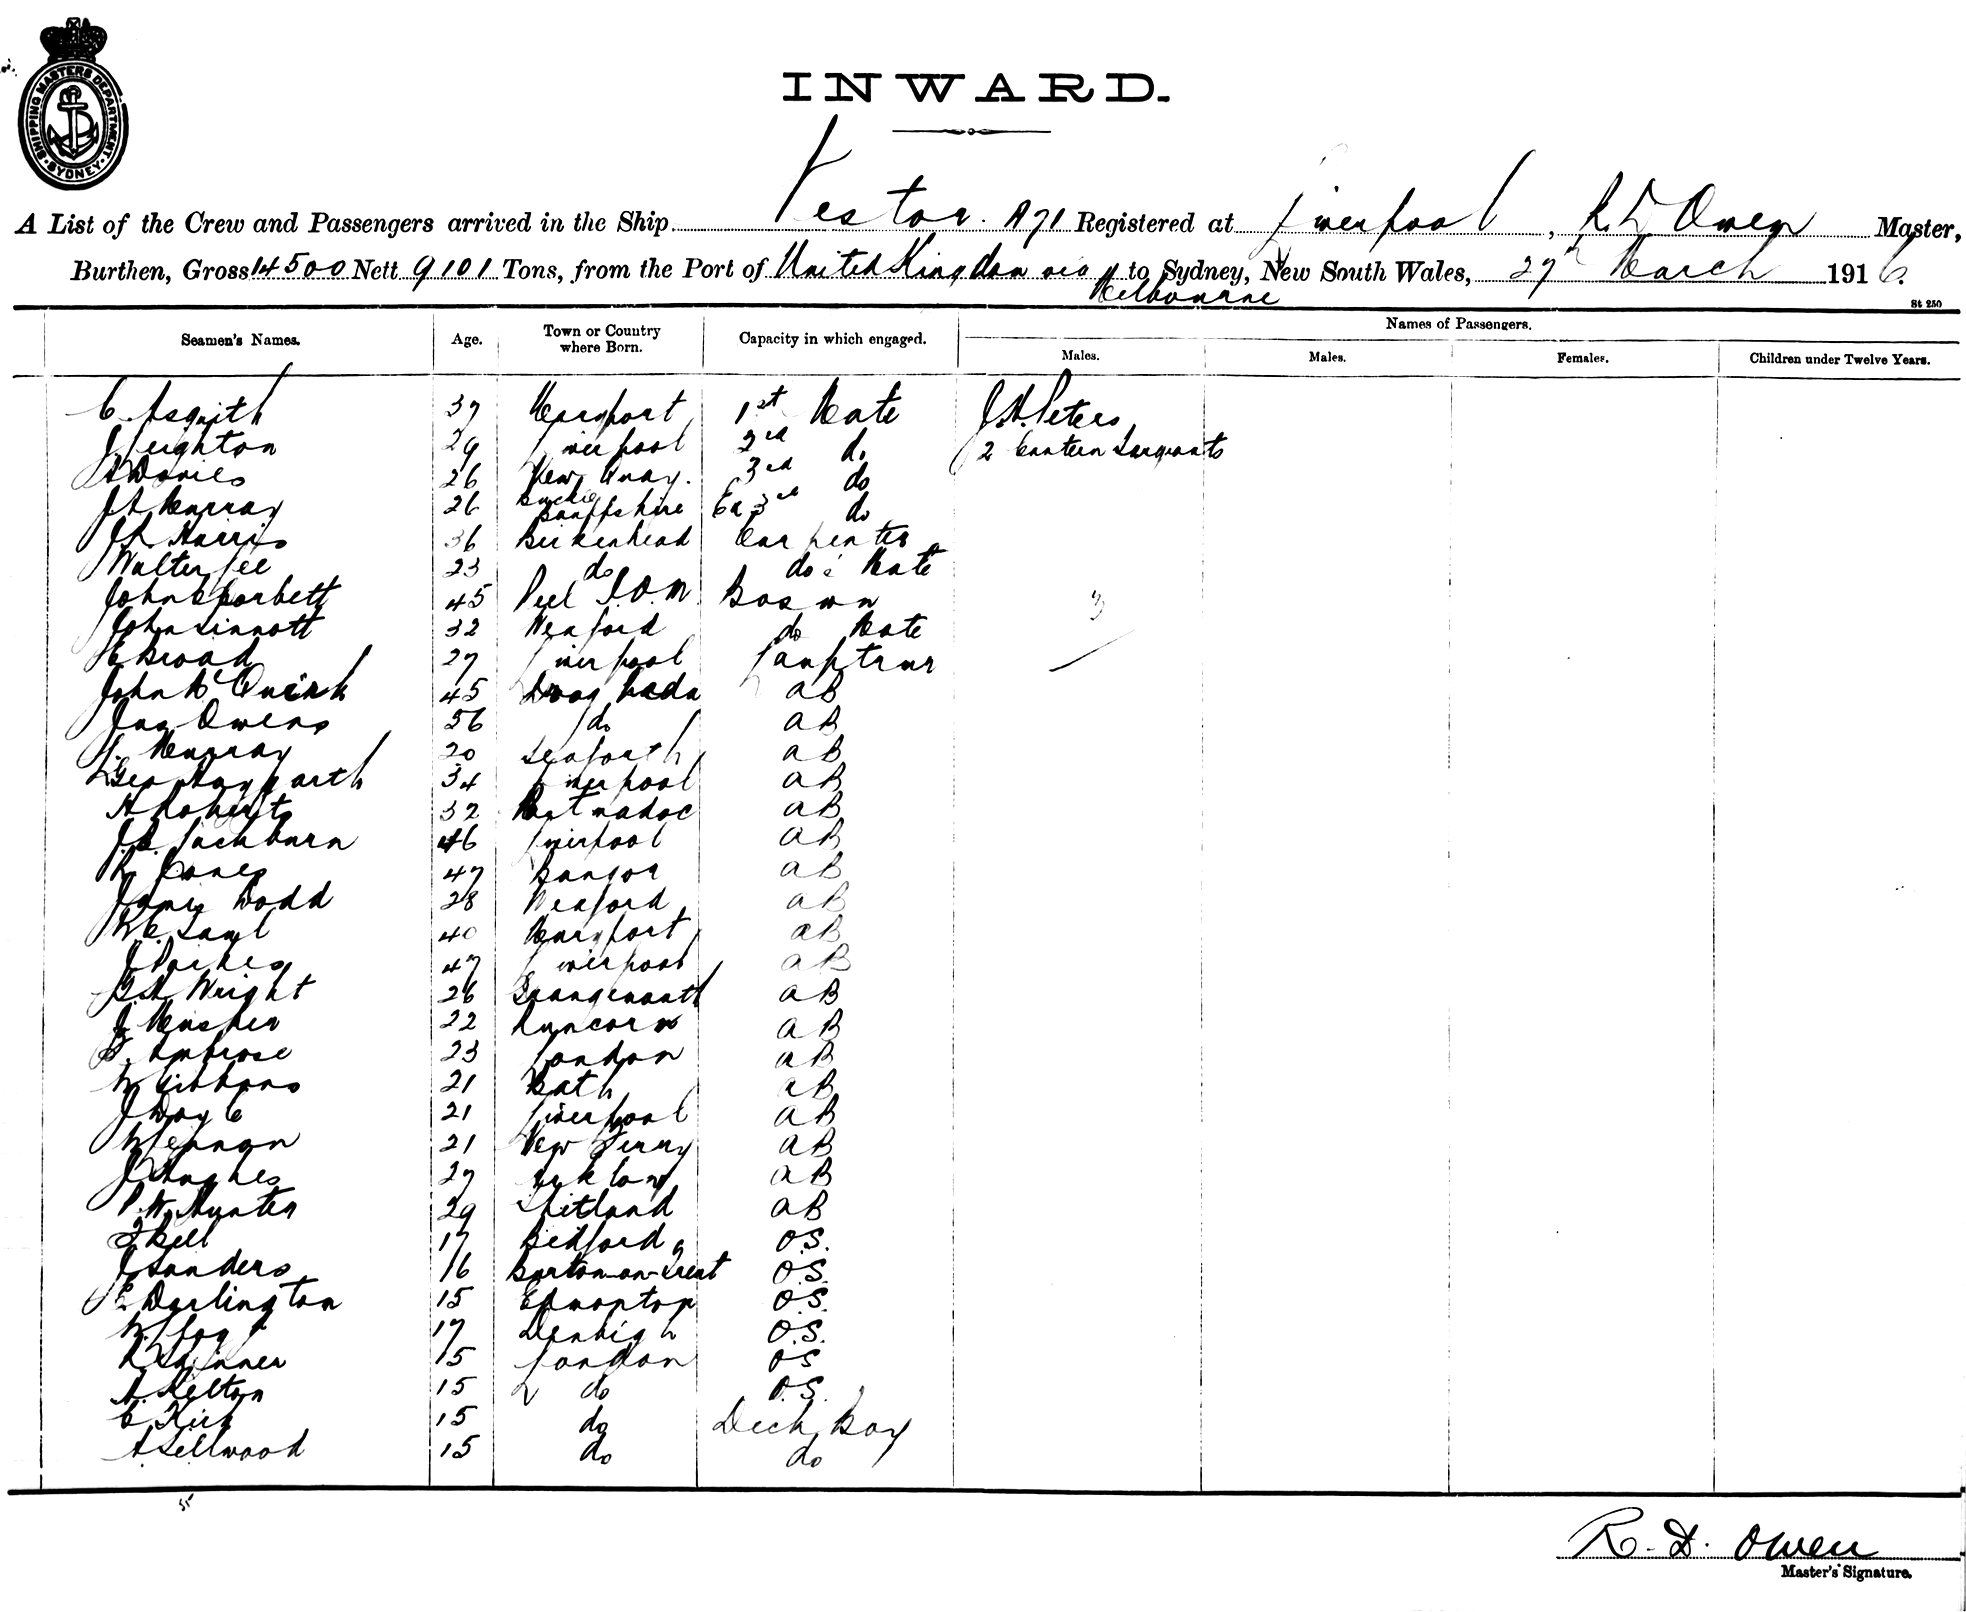 SHIPPING MASTERS DEPARTMENT SYDNEY
INWARD.
A List of the Crew and Passengers arrived in the Ship Nestor. A71 Registered at Liverpool, R. D. Owen Master,
Burthen, Gross 14500 Nett 9101 Tons, from the Port of United Kingdom via Melbourne to Sydney, New South Wales, 27th March 1916.
St 250
Seamen's Names. Age. Town or Country where Born. Capacity in which engaged. Names of Passengers.
Males. Males. Females. Children under Twelve Years.
C. Asquith 37 Maryport 1st Mate J.H. Peters
J Leighton 29 Liverpool 2nd do 2 Canteen Sargeants
Davies 26 New Quay. 3rd do
J A Murray 26 Buckie Banffshire Ex 3rd do
J L Harris 36 Birkenhead Carpenter
Walter Lee 23 do do's Mate
John Corbett 45 Peel I.O.M Boswn 3
John Sinnott 32 Wexford do Mate
E Broad 27 Liverpool Lamptrmr
John McQuirk 45 Drogheda AB
Jas Owens 56 do AB
J. Murray 20 Seaforth AB
Geo Haygarth 34 Liverpool AB
H Roberts 32 Portmadoc AB
J.C. Lackburn 46 Liverpool AB
R Jones 47 Bangor AB
James Dodd 28 Wexford AB
W C. Saul 40 Maryport AB
J Parkes 47 Liverpool AB
G A Wright 26 Grangemouth AB
J Musker 22 Runcorn AB
G. Ambrose 23 London AB
W Gibbons 21 Bath AB
J Doyle 21 Liverpool AB
W Lennon 21 New Ferry AB
J Hughes 27 Arklow AB
P. W. Hunter 29 Shetland AB
Bell 17 Bedford O.S.
J Sanders 16 Burton-on-Trent O.S.
E Darlington 15 Edmonton O.S.
W. Lloyd 17 Denbigh O.S.
R Skinner 15 London OS
A. Kelton 15 do O.S.
C Kirk 15 do Deck Boy
A Sellwood 15 do do
R. D. Owen
Master's Signature.